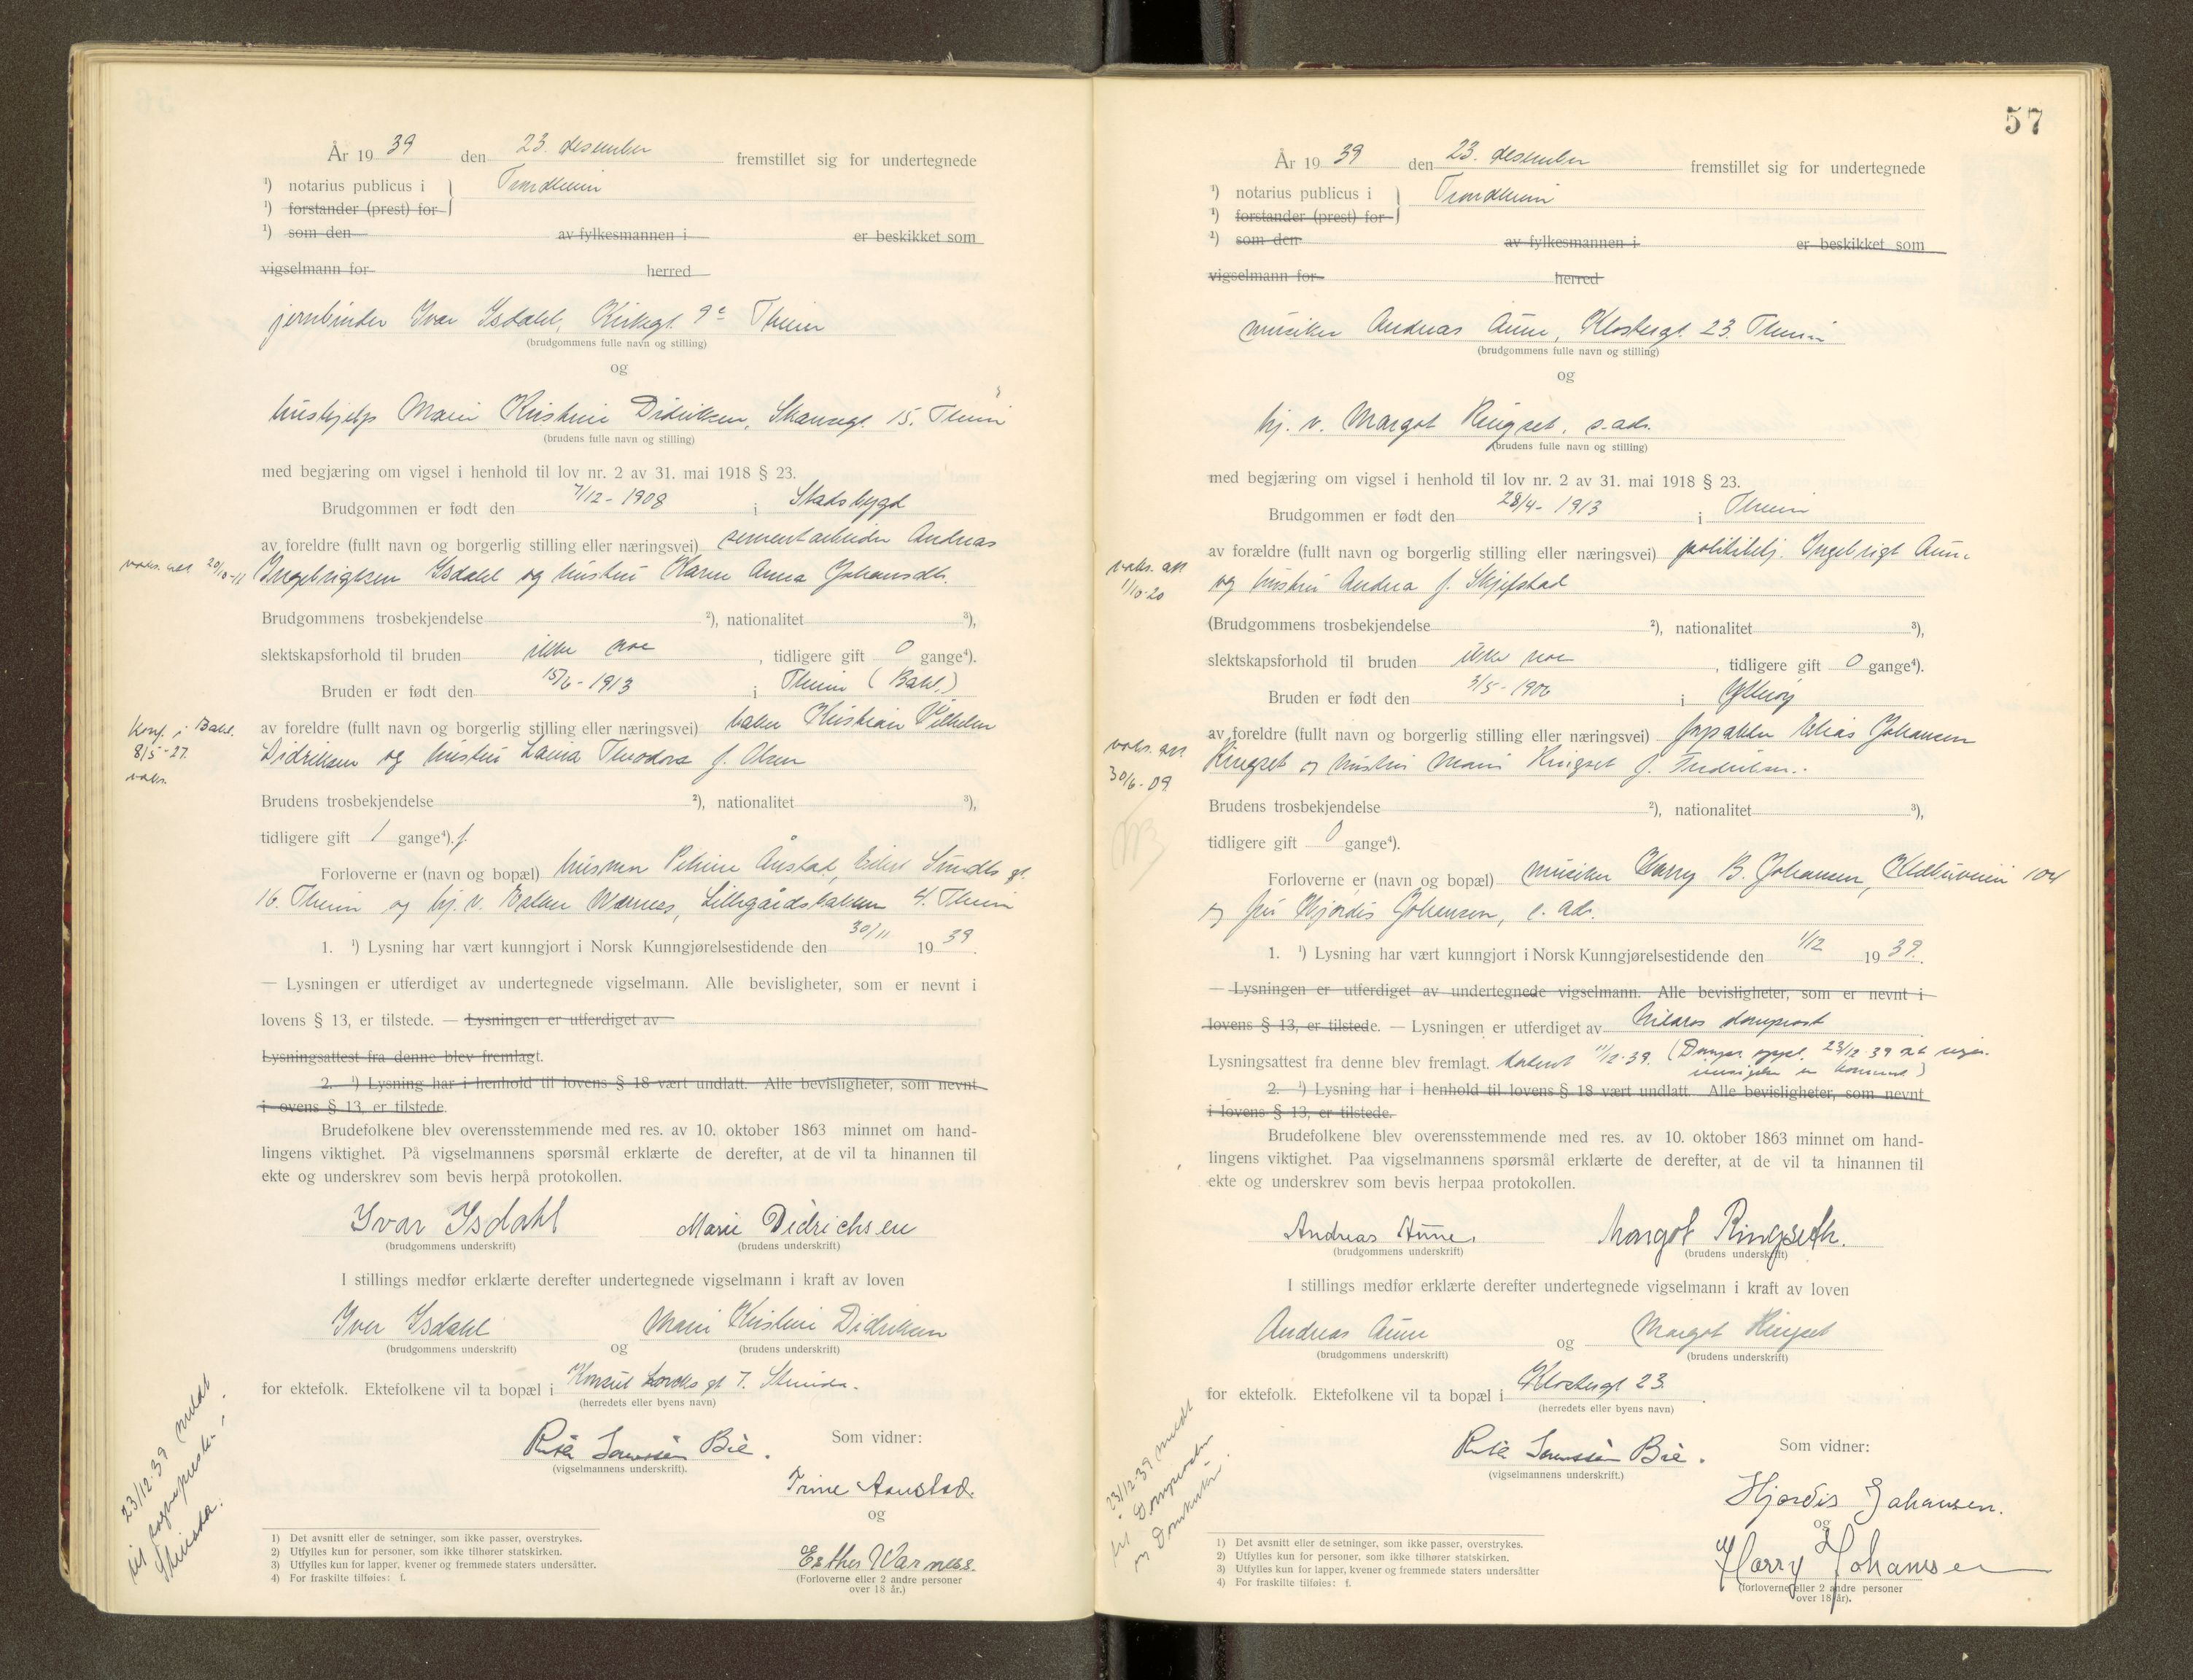 År 19 39 den 23. desember fremstillet sig for undertegnede
¹) notarius publicus i } Trondheim
¹) forstander (prest) for
¹) som den av fylkesmannen i er beskikket som
vigselmann for herred
jernbinder Ivar Isdahl, Kirkegt. 9c Theim
(brudgommens fulle navn og stilling)
og
hushjelp Marie Kristine Didriksen, Skansegt. 15. Theim
(brudens fulle navn og stilling)
med begjæring om vigsel i henhold til lov nr. 2 av 31. mai 1918 § 23.
Brudgommen er født den 7/12 - 1908 i Stadsbygd
av foreldre (fullt navn og borgerlig stilling eller næringsvei) sementarbeider Andreas
vaks. att. 20/10-11 Ingebrigtsen Isdahl og hustru Karen Anna Johansdtr.
Brudgommens trosbekjendelse ²), nationalitet ³),
slektskapsforhold til bruden ikke noe , tidligere gift 0 gange⁴).
Bruden er født den 15/6 - 1913 i Theim (Bakl.)
av foreldre (fullt navn og borgerlig stilling eller næringsvei) baker Kristian Vilhelm
Konf. i Bakl.
8/5-27.
vaks.
Didriksen og hustru Laura Theodora f. Olsen
Brudens trosbekjendelse ²), nationalitet ³),
tidligere gift 1 gange⁴). f.
Forloverne er (navn og bopæl) husmor Petrine Aunstad, Eilert Sundts gt.
16. Theim og hj. v. Esther Warness, Lillegårdsbakken 4. Theim
1. ¹) Lysning har vært kunngjort i Norsk Kunngjørelsestidende den 30/11 19 39.
— Lysningen er utferdiget av undertegnede vigselmann. Alle bevisligheter, som er nevnt i
lovens § 13, er tilstede. — Lysningen er utferdiget av
Lysningsattest fra denne blev fremlagt.
2. ¹) Lysning har i henhold til lovens § 18 vært undlatt. Alle bevisligheter, som nevnt
i ovens § 13, er tilstede.
Brudefolkene blev overensstemmende med res. av 10. oktober 1863 minnet om hand-
lingens viktighet. På vigselmannens spørsmål erklærte de derefter, at de vil ta hinannen til
ekte og underskrev som bevis herpå protokollen.
Ivar Isdahl Marie Didrichsen
(brudgommens underskrift) (brudens underskrift)
I stillings medfør erklærte derefter undertegnede vigselmann i kraft av loven
Ivar Isdahl og Marie Kristine Didriksen
(brudgommens underskrift) (brudens underskrift)
for ektefolk. Ektefolkene vil ta bopæl i Konsul Lorcks gt 7. Strinda.
(herredets eller byens navn)
Bie.
(vigselmannens underskrift).
Som vidner:
Trine Aunstad.
og
Esther Warness.
(Forloverne eller 2 andre personer
over 18 år.)
23/12-39 meldt
til sognepresten i
Strinda.
1) Det avsnitt eller de setninger, som ikke passer, overstrykes.
2) Utfylles kun for personer, som ikke tilhører statskirken.
3) Utfylles kun for lapper, kvener og fremmede staters undersåtter.
4) For fraskilte tilføies: f.
57
År 19 39 den 23. desember fremstillet sig for undertegnede
¹) notarius publicus i } Trondheim
¹) forstander (prest) for
²) som den av fylkesmannen i er beskikket som
vigselmann for herred
musiker Andreas Aune, Klostergt. 23. Theim
(brudgommens fulle navn og stilling)
og
hj. v. Margot Ringset, s. ads.
(brudens fulle navn og stilling)
med begjæring om vigsel i henhold til lov nr. 2 av 31. mai 1918 § 23.
Brudgommen er født den 28/4 - 1913 i Theim
av forældre (fullt navn og borgerlig stilling eller næringsvei) politibtj. Ingebrigt Aune
vaks. att
1/10-20
og hustru Andrea f. Skjefstad
(Brudgommens trosbekjendelse ²), nationalitet ³),
slektskapsforhold til bruden ikke noe , tidligere gift 0 gange⁴).
Bruden er født den 3/5 - 1906 i Ytterøy
av foreldre (fullt navn og borgerlig stilling eller næringsvei) Elias Johansen
vaks. att
30/6-09
Ringset og hustru Marie Ringset f. Fredriksen.
Brudens trosbekjendelse ²), nationalitet ³),
tidligere gift 0 gange⁴).
Forloverne er (navn og bopæl) musiker Harry B. Johansen, 104
og fru Hjørdis Johansen, s. ads.
1. ¹) Lysning har vært kunngjort i Norsk Kunngjørelsestidende den 1/12 19 39.
— Lysningen er utferdiget av undertegnede vigselmann. Alle bevisligheter, som er nevnt i
lovens § 13, er tilstede. — Lysningen er utferdiget av Nidaros domprost
Lysningsattest fra denne blev fremlagt. datert 11/12-39. (Dompr. oppl. 23/12-39 at
2. ¹) Lysning har i henhold til lovens § 18 vært undlatt. Alle bevisligheter, som nevnt
i lovens § 13, er tilstede.
Brudefolkene blev overensstemmende med res. av 10. oktober 1863 minnet om hand-
lingens viktighet. Paa vigselmannens spørsmål erklærte de derefter, at de vil ta hinannen til
ekte og underskrev som bevis herpaa protokollen.
Andreas Aune. Margot Ringseth.
(brudgommens underskrift) (brudens underskrift)
I stillings medfør erklærte derefter undertegnede vigselmann i kraft av loven
Andreas Aune og Margot Ringset
(brudgommens underskrift) (brudens underskrift)
for ektefolk. Ektefolkene vil ta bopæl i Klostergt 23.
(herredets eller byens navn)
Bie.
(vigselmannens underskrift.)
Som vidner:
Hjørdis Johansen.
og
Harry Johansen
(forloverne eller 2 andre personer
over 18 år).
23/12-39 meldt
til Domprosten
og Domkirken.
1) Det avsnitt eller de setninger, som ikke passer, overstrykes.
2) Utfylles kun for personer, som ikke tilhører statskirken.
3) Utfylles kun for lapper, kvener og fremmede staters undersåtter
4) For fraskilte tilføies: f.